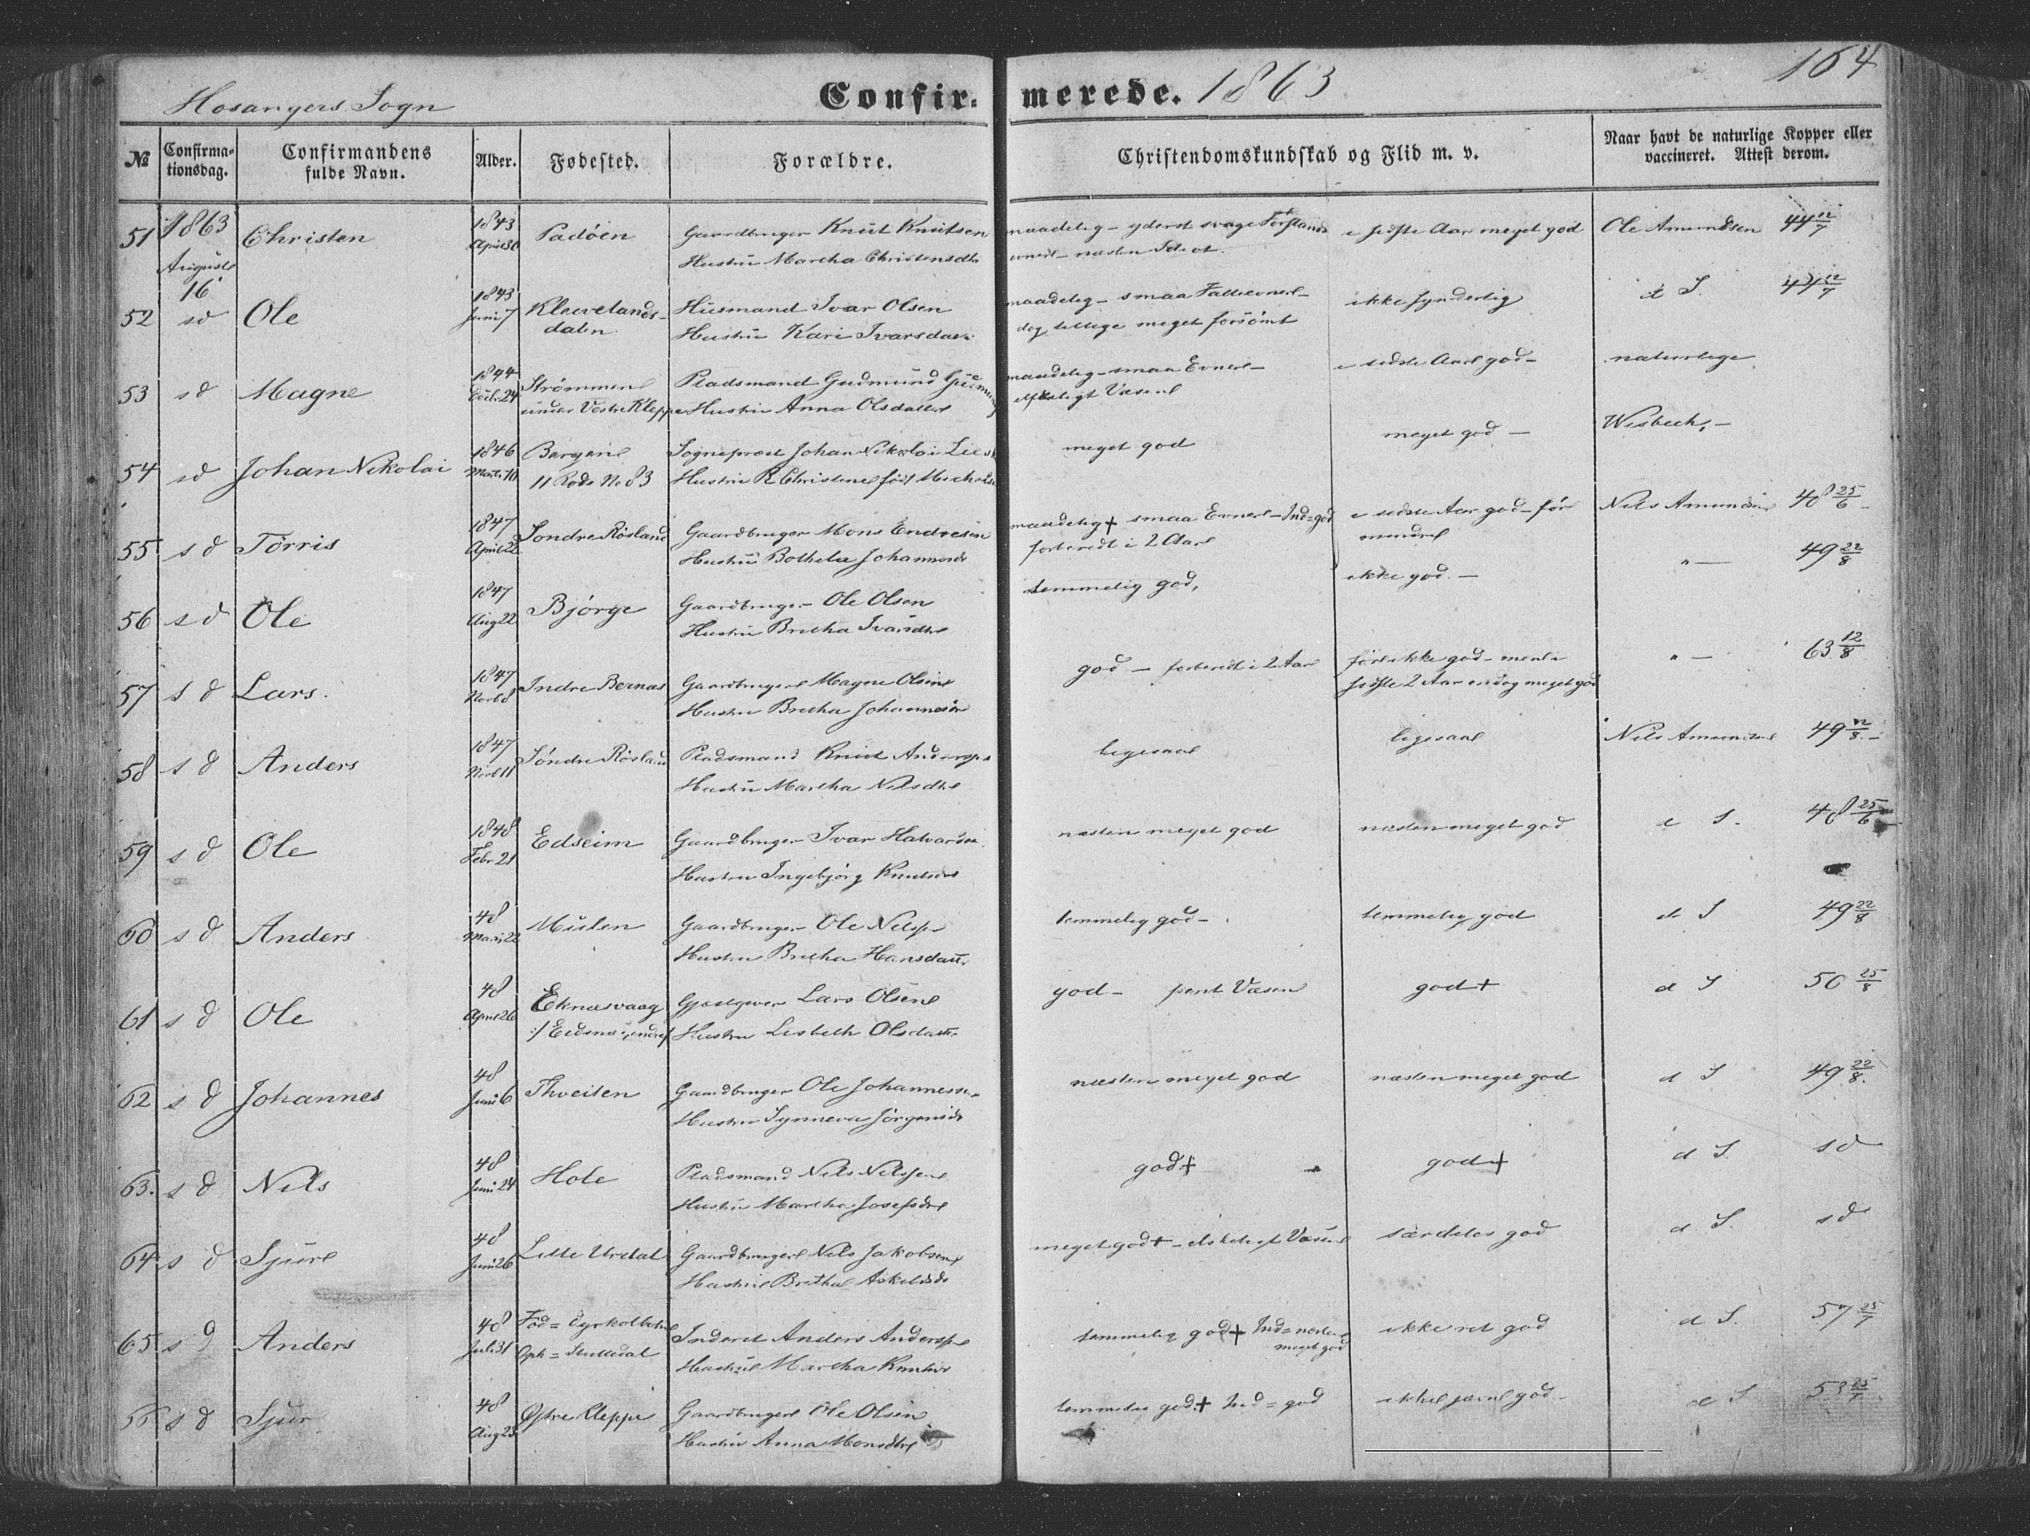 Hosangers Sogn
Confir-merede. 1863
104
№ Confirma-tionsdag. Confirmandens fulde Navn. Alder. Fødested. Forældre. Christendomskundskab og Flid m. v. Naar havt de naturlige Kopper eller vaccineret. Attest derom.
51 1863 August 16 Christen 1843 April 30 Padøen Gaardbruger Knut Knutsen
Hustru Martha Christensdtr
maadelig - yderst svage Forstands evner - næsten Idiot. i sidste Aar meget god Ole Amundsen 44 12/7
52 sd Ole 1843 Juni 7 Kleevelands-dalen Husmand Ivar Olsen
Hustru Kari Ivarsdatr
maadelig - smaa
dog tillige meget forsömt ikke synderlig d S. 44 12/7
53 sd Magne 1844 Decbr 24 Strømmene under Vestre Kleppe Pladsmand Gudmund
Hustru Anna Olsdatter
maadelig - smaa Evner - elskeligt Væsen i sidste Aar god - naturlige
54 sd Johan Nikolai 1846 Marts 10 Bergen 11 Rode No 83 Sogneprest Johan Nikolai
Hustru Christine født
meget god meget god - Wisbech. -
55 sd Törris 1847 April 22 Söndre Rösland Gaardbruger Mons Endresen
Hustru Bothela Johannesdr
maadelig + smaa Evner - Ind = god
forberedt i 2 Aar i sidste Aar god - för mindre Nils Amundsen 48 25/6
56 sd Ole 1847 Aug 22 Bjørge Gaardbruger Ole Olsen
Hustru Britha Ivarsdtr
temmelig god, ikke god. - " - 49 22/8
57 sd Lars. 1847 Indre Bernes Gaardbruger Magne Olsen
Hustru Britha Johannesdr
god - forberedt i 2 Aar för ikke god - men i sidste 2 Aar endog meget god " - 63 12/8
58 sd Anders 1847 Söndre Rösland Pladsmand Knut Anders
Hustru Martha Nilsdtr
ligesaa ligesaa Nils Amundsen 49 22/8. -
59 sd Ole 1848 Febr 21 Edseim Gaardbruger Ivar Halvards
Hustru Ingebjörg Knutsdr
næsten meget god næsten meget god d S. 48 25/6
60 sd Anders 48 22 Mulen Gaardbruger Ole Nilss
Hustru Britha Hansdatr
temmelig god - temmelig god d S 49 22/8
61 sd Ole 48 April 26 Eknæsvaag Gjestgiver Lars Olsen
Hustru Lisbeth Olsdatr
god - pent Væsen god + d S 50 25/8
62 sd Johannes 48 Juni 6 Thveiten Gaardbruger Ole Johanness
Hustru Synneva Jörgensdr
næsten meget god næsten meget god d S 49 22/8.
63. sd Nils 48 Juni 24 Hole Pladsmand Nils Nilssen
Hustru Martha Josefsdtr
god + god + d S. sd
64 sd Sjur 48 Juni 26 Litle Urdal Gaardbruger Nils Jakobsen
Hustru Britha Askeldsdr
meget god + - elskeligt Væsen særdeles god d S. sd
65 sd Anders 48 Juli 31 Fød = Oph = Stuttedal Inderst Anders Anderss
Hustru Martha Knutsdr
temmelig god + Ind = næsten meget god ikke ret god d S. 57 25/7
66 sd Sjur 48 Aug 23 Østre Kleppe Gaardbruger Ole Olsen
Hustru Anna Monsdtr
temmelig god. + Ind = god ikke jævn god - d S 53 25/7